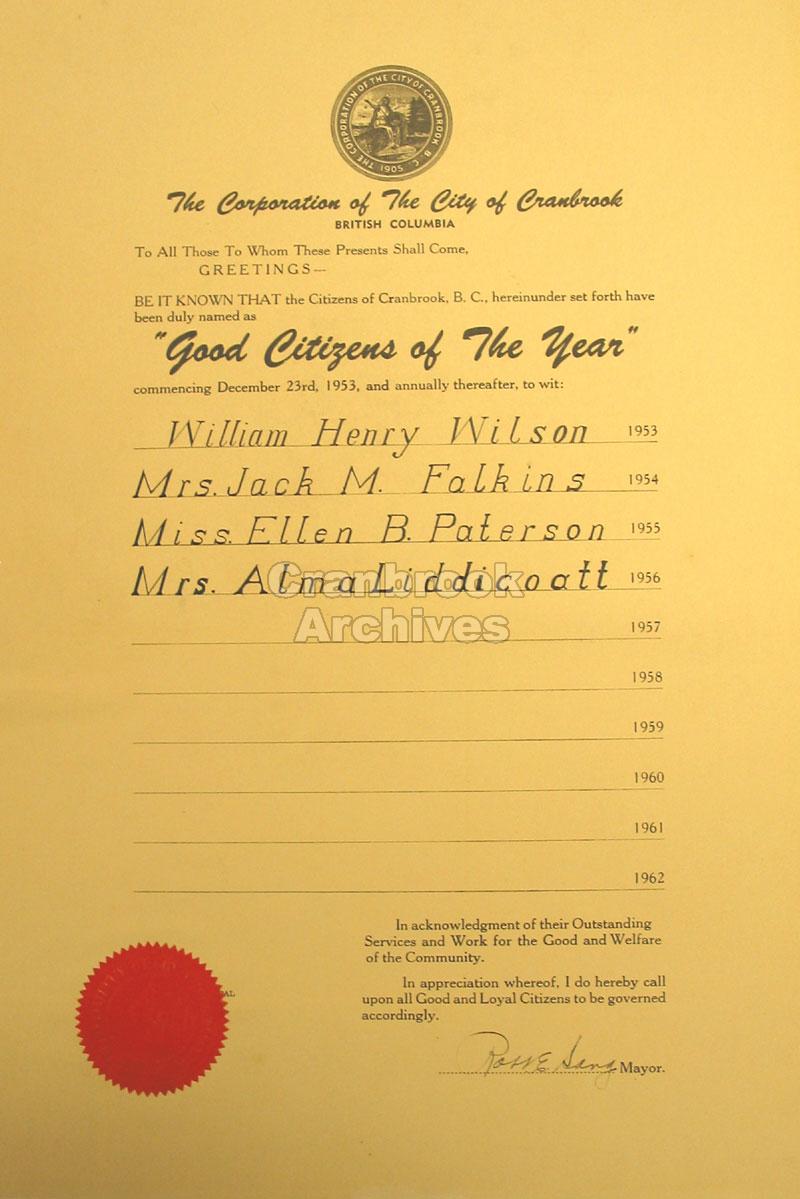 THE CORPORATION OF THE CITY OF CRANBROOK B. C.
1905
The Corporation of The City of Cranbrook
BRITISH COLUMBIA
To All Those To Whom These Presents Shall Come,
GREETINGS—
BE IT KNOWN THAT the Citizens of Cranbrook, B. C., hereinunder set forth have
been duly named as
"Good Citizens of The Year"
commencing December 23rd, 1953, and annually thereafter, to wit:
William Henry Wilson 1953
Mrs. Jack M. Falkins 1954
Miss. Ellen B. Paterson 1955
Mrs. Alma Liddicoatt 1956
Cranbrook
Archives
1957
1958
1959
1960
1961
1962
In acknowledgment of their Outstanding
Services and Work for the Good and Welfare
of the Community.
In appreciation whereof, I do hereby call
upon all Good and Loyal Citizens to be governed
accordingly.
Mayor.